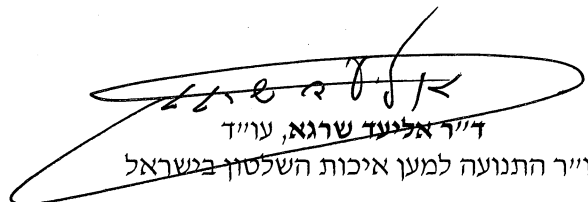 אליעד שרגא
ד"ר אליעד שרגא, עו"ד
יו"ר התנועה למען איכות השלטון בישראל